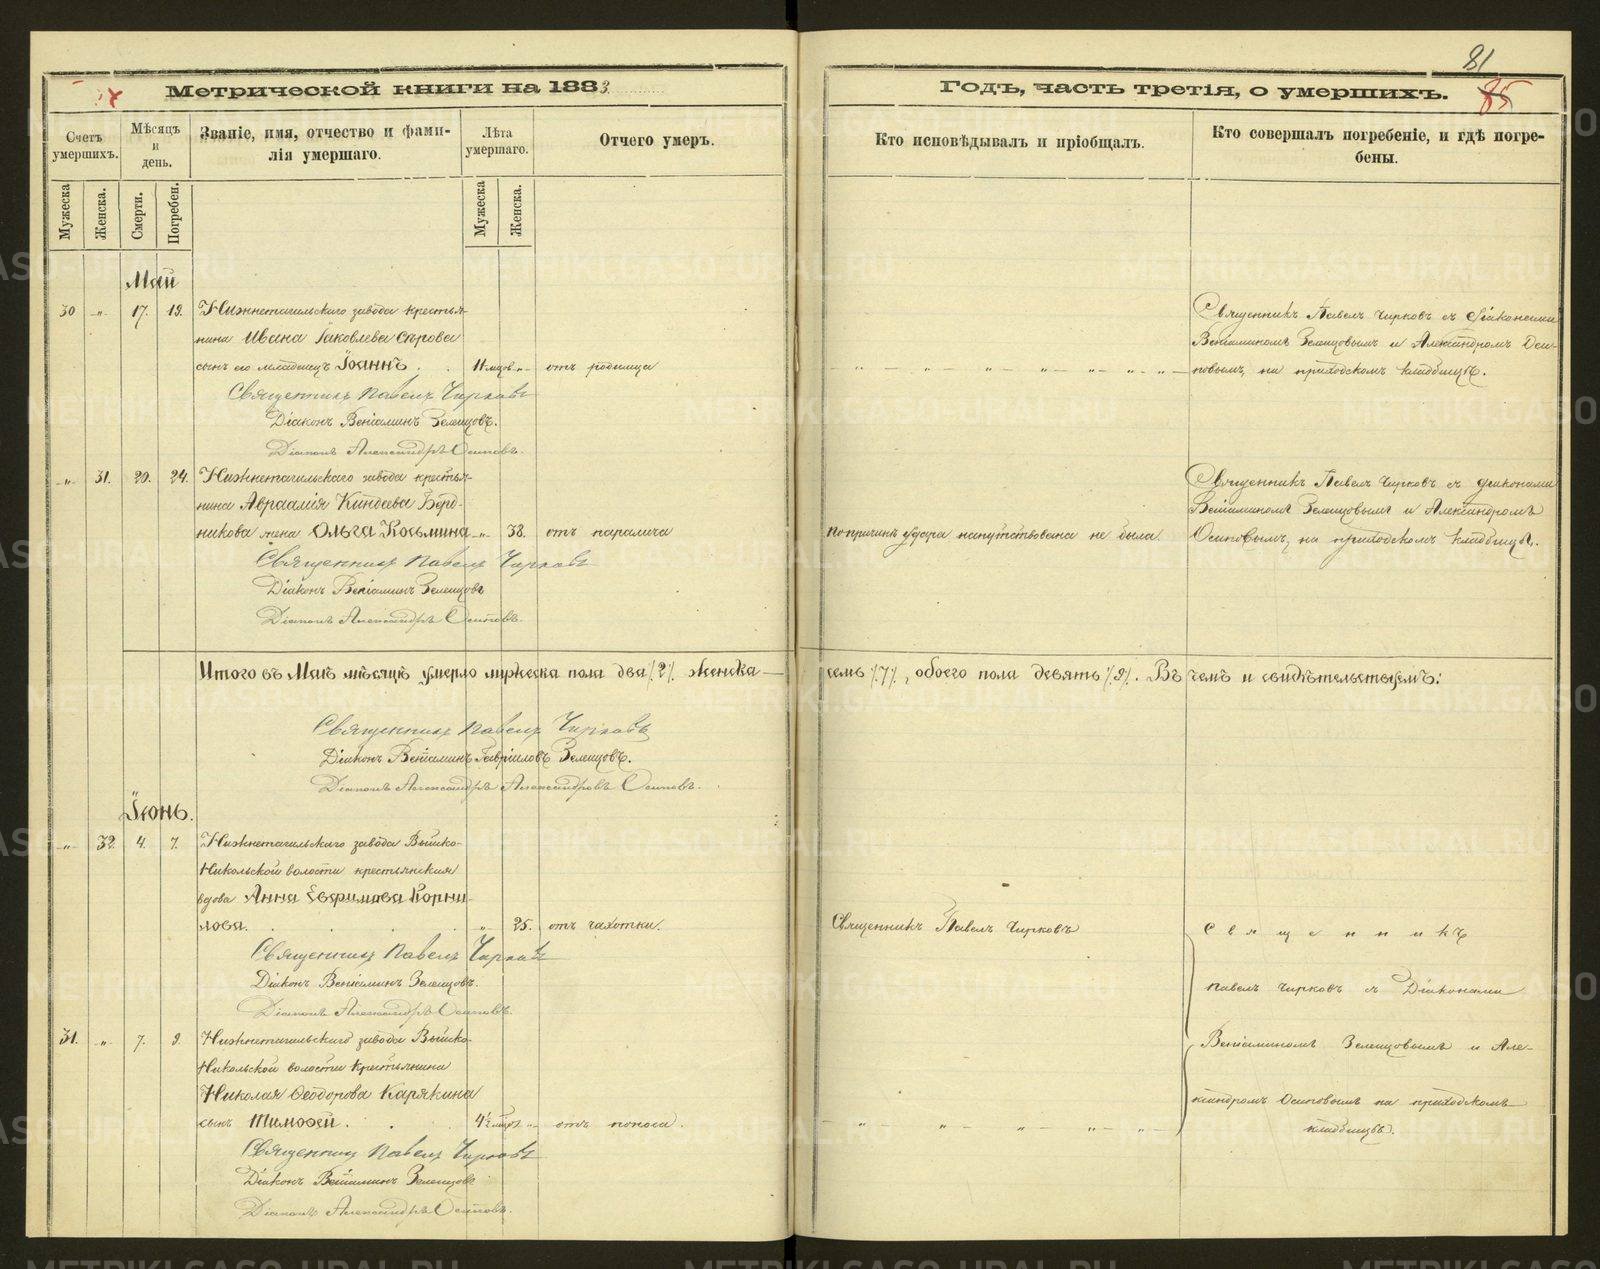 81
85
Метрической книги на 1883
Годъ, часть третія, о умершихъ.
Счетъ умершихъ.
Мѣсяцъ и день.
Званіе, имя, отчество и фами-
лія умершаго.
Лѣта умершаго.
Отчего умеръ.
Кто исповѣдывалъ и пріобщалъ.
Кто совершалъ погребеніе, и гдѣ погре-
бены.
Мужеска
Женска.
Смерти.
Погребен.
Мужеска
Женска.
Май
30 -„- 17. 19. Нижнетагильскаго завода крестья-
нина Ивана Іаковлева Сѣрова
сынъ его младенецъ Іоаннъ . . 11 мцов -„- отъ родимца
Священникъ Павелъ Чирковъ съ діаконами
Веніаминомъ Зеленцовымъ и Александромъ Оси-
повымъ, на приходскомъ кладбищѣ.
Священникъ Павелъ Чирковъ
Діаконъ Веніаминъ Зеленцовъ.
Діаконъ Александръ Осиповъ.
-„- 31. 20. 24. Нижнетагильскаго завода крестья-
нина Авраамія
никова жена Ольга Косьмина -„- 38. отъ паралича
по причинѣ удара напутствована не была.
Священникъ Павелъ Чирковъ съ діконами
Веніаминомъ Зеленцовымъ и Александромъ
Осиповымъ, на приходскомъ кладбищѣ.
Священникъ Павелъ Чирковъ
Діаконъ Веніаминъ Зеленцовъ
Діаконъ Александръ Осиповъ.
Итого въ Маѣ мѣсяцѣ умерло мужеска пола два /.2/. женска — семь /.7/., обоего пола девять /.9/. Въ чемъ и свидѣтельствуемъ:
Священникъ Павелъ Чирковъ
Діаконъ Веніаминъ Гавріиловъ Зеленцовъ.
Діаконъ Александръ Александровъ Осиповъ.
Іюнь.
-„- 32. 4. 7. Нижнетагильскаго завода Выйско-
Никольской волости крестьянская
вдова Анна Евфимова Корни-
лова. . . . -„- 25. отъ чахотки.
Священникъ Павелъ Чирковъ
Священникъ
Павелъ Чирковъ съ Діаконами
Веніаминомъ Зеленцовымъ и Але-
ксандромъ Осиповымъ на приходскомъ
кладбищѣ.
Священникъ Павелъ Чирковъ
Діаконъ Веніаминъ Зеленцовъ.
Діаконъ Александръ Осиповъ.
31. -„- 7. 9. Нижнетагильскаго завода Выйско-
Никольской волости крестьянина
Николая Ѳеодорова Карякина
сынъ Тимоѳей. . . 4½ мцов -„- отъ поноса.
Священникъ Павелъ Чирковъ
Діаконъ Веніаминъ Зеленцовъ
Діаконъ Александръ Осиповъ.
METRIKI.GASO-URAL.RU